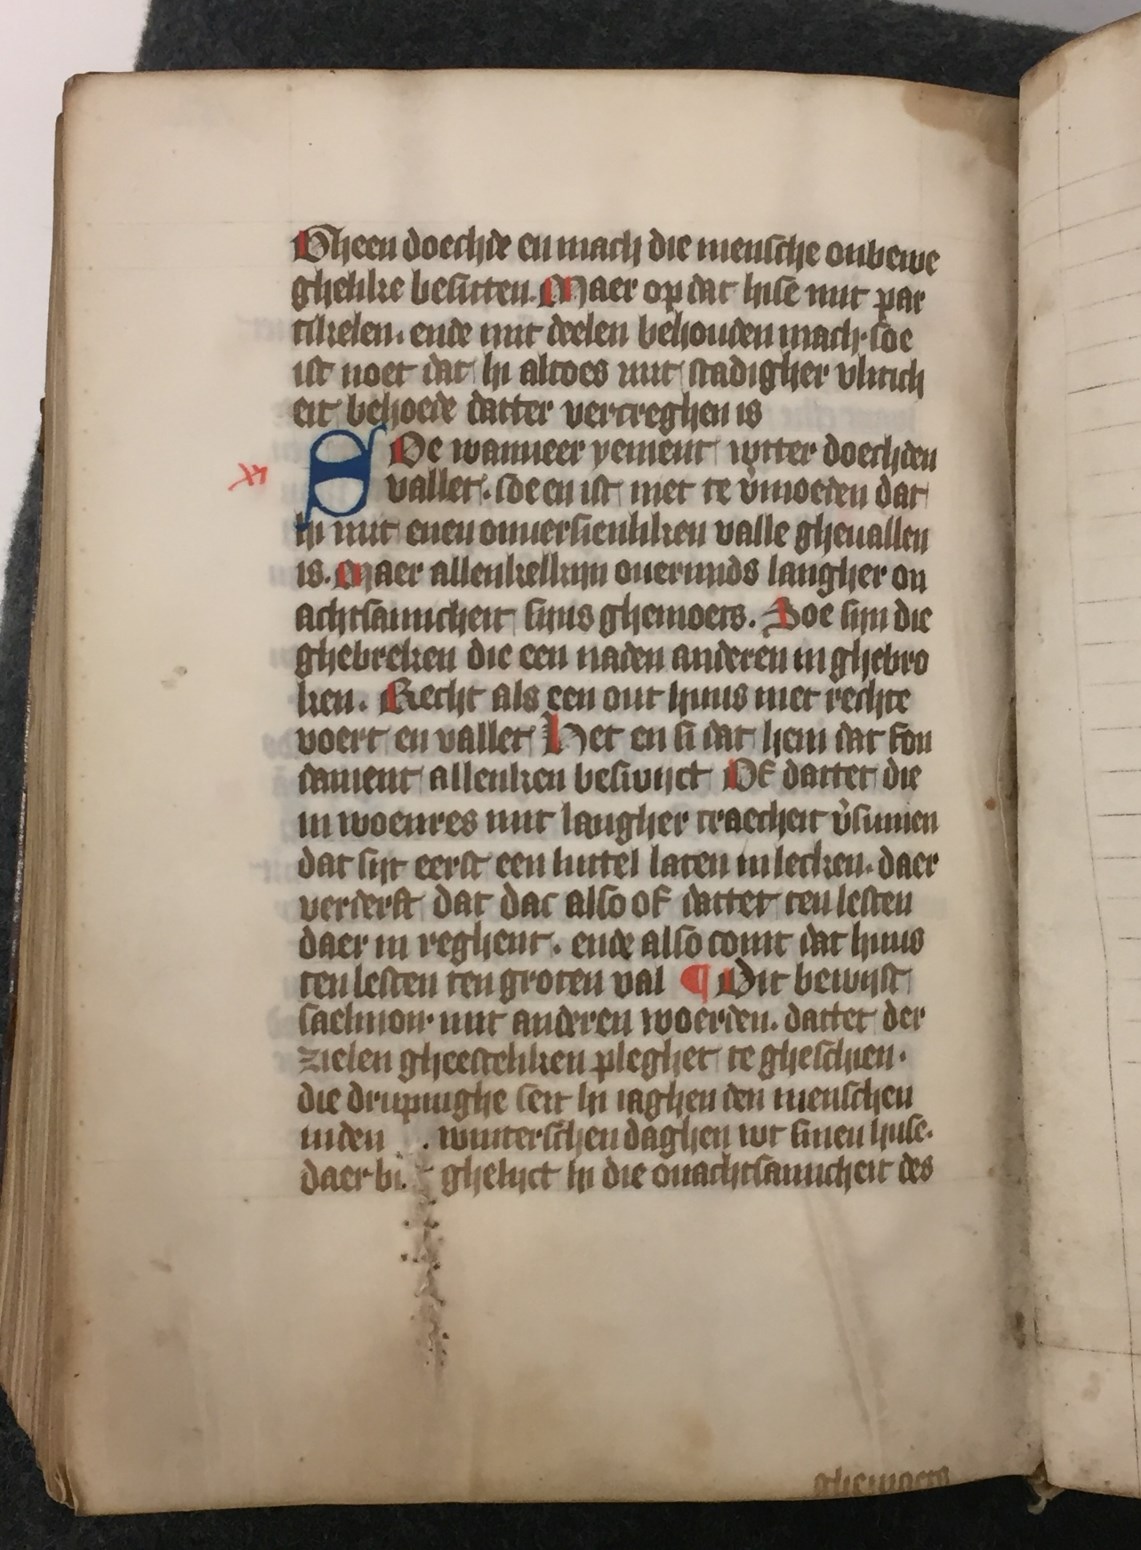 Gheen doechde en mach die mensche onbewe
ghelike besitten. Maer op dat hise mit par
tikelen. ende mit deelen behouden mach. soe
ist noet dat hi altoes mit stadigher vlitich
eit behoede datter vercreghen is
xi
SOe wanneer yement wtter doechden
vallet. soe en ist niet te v̓moeden dat
hi mit enen onversienliken valle ghevallen
is. Maer allenkelkijn overmids langher on
achtsamicheit sijns ghemoets. Soe sijn die
ghebreken die een naden anderen in ghebro
ken. Recht als een out huus niet rechte
voert en vallet Het en si dat hem dat fon
dament allenken beswijct Of dattet die
in woenres mit langher traecheit v̓sumen
dat sijt eerst een luttel laten inlecken. daer
verderft dat dac also of dattet ten lesten
daer in reghent. ende also comt dat huus
ten lesten ten groten val ¶ Dit bewijst
saelmon. mit anderen woerden. dattet der
zielen gheesteliken pleghet te ghescien.
die drupinghe seit hi iaghen den menschen
inden . winterschen daghen wt sinen huse.
daer bi. ghelijct hi die onachtsamicheit des
ghemoets